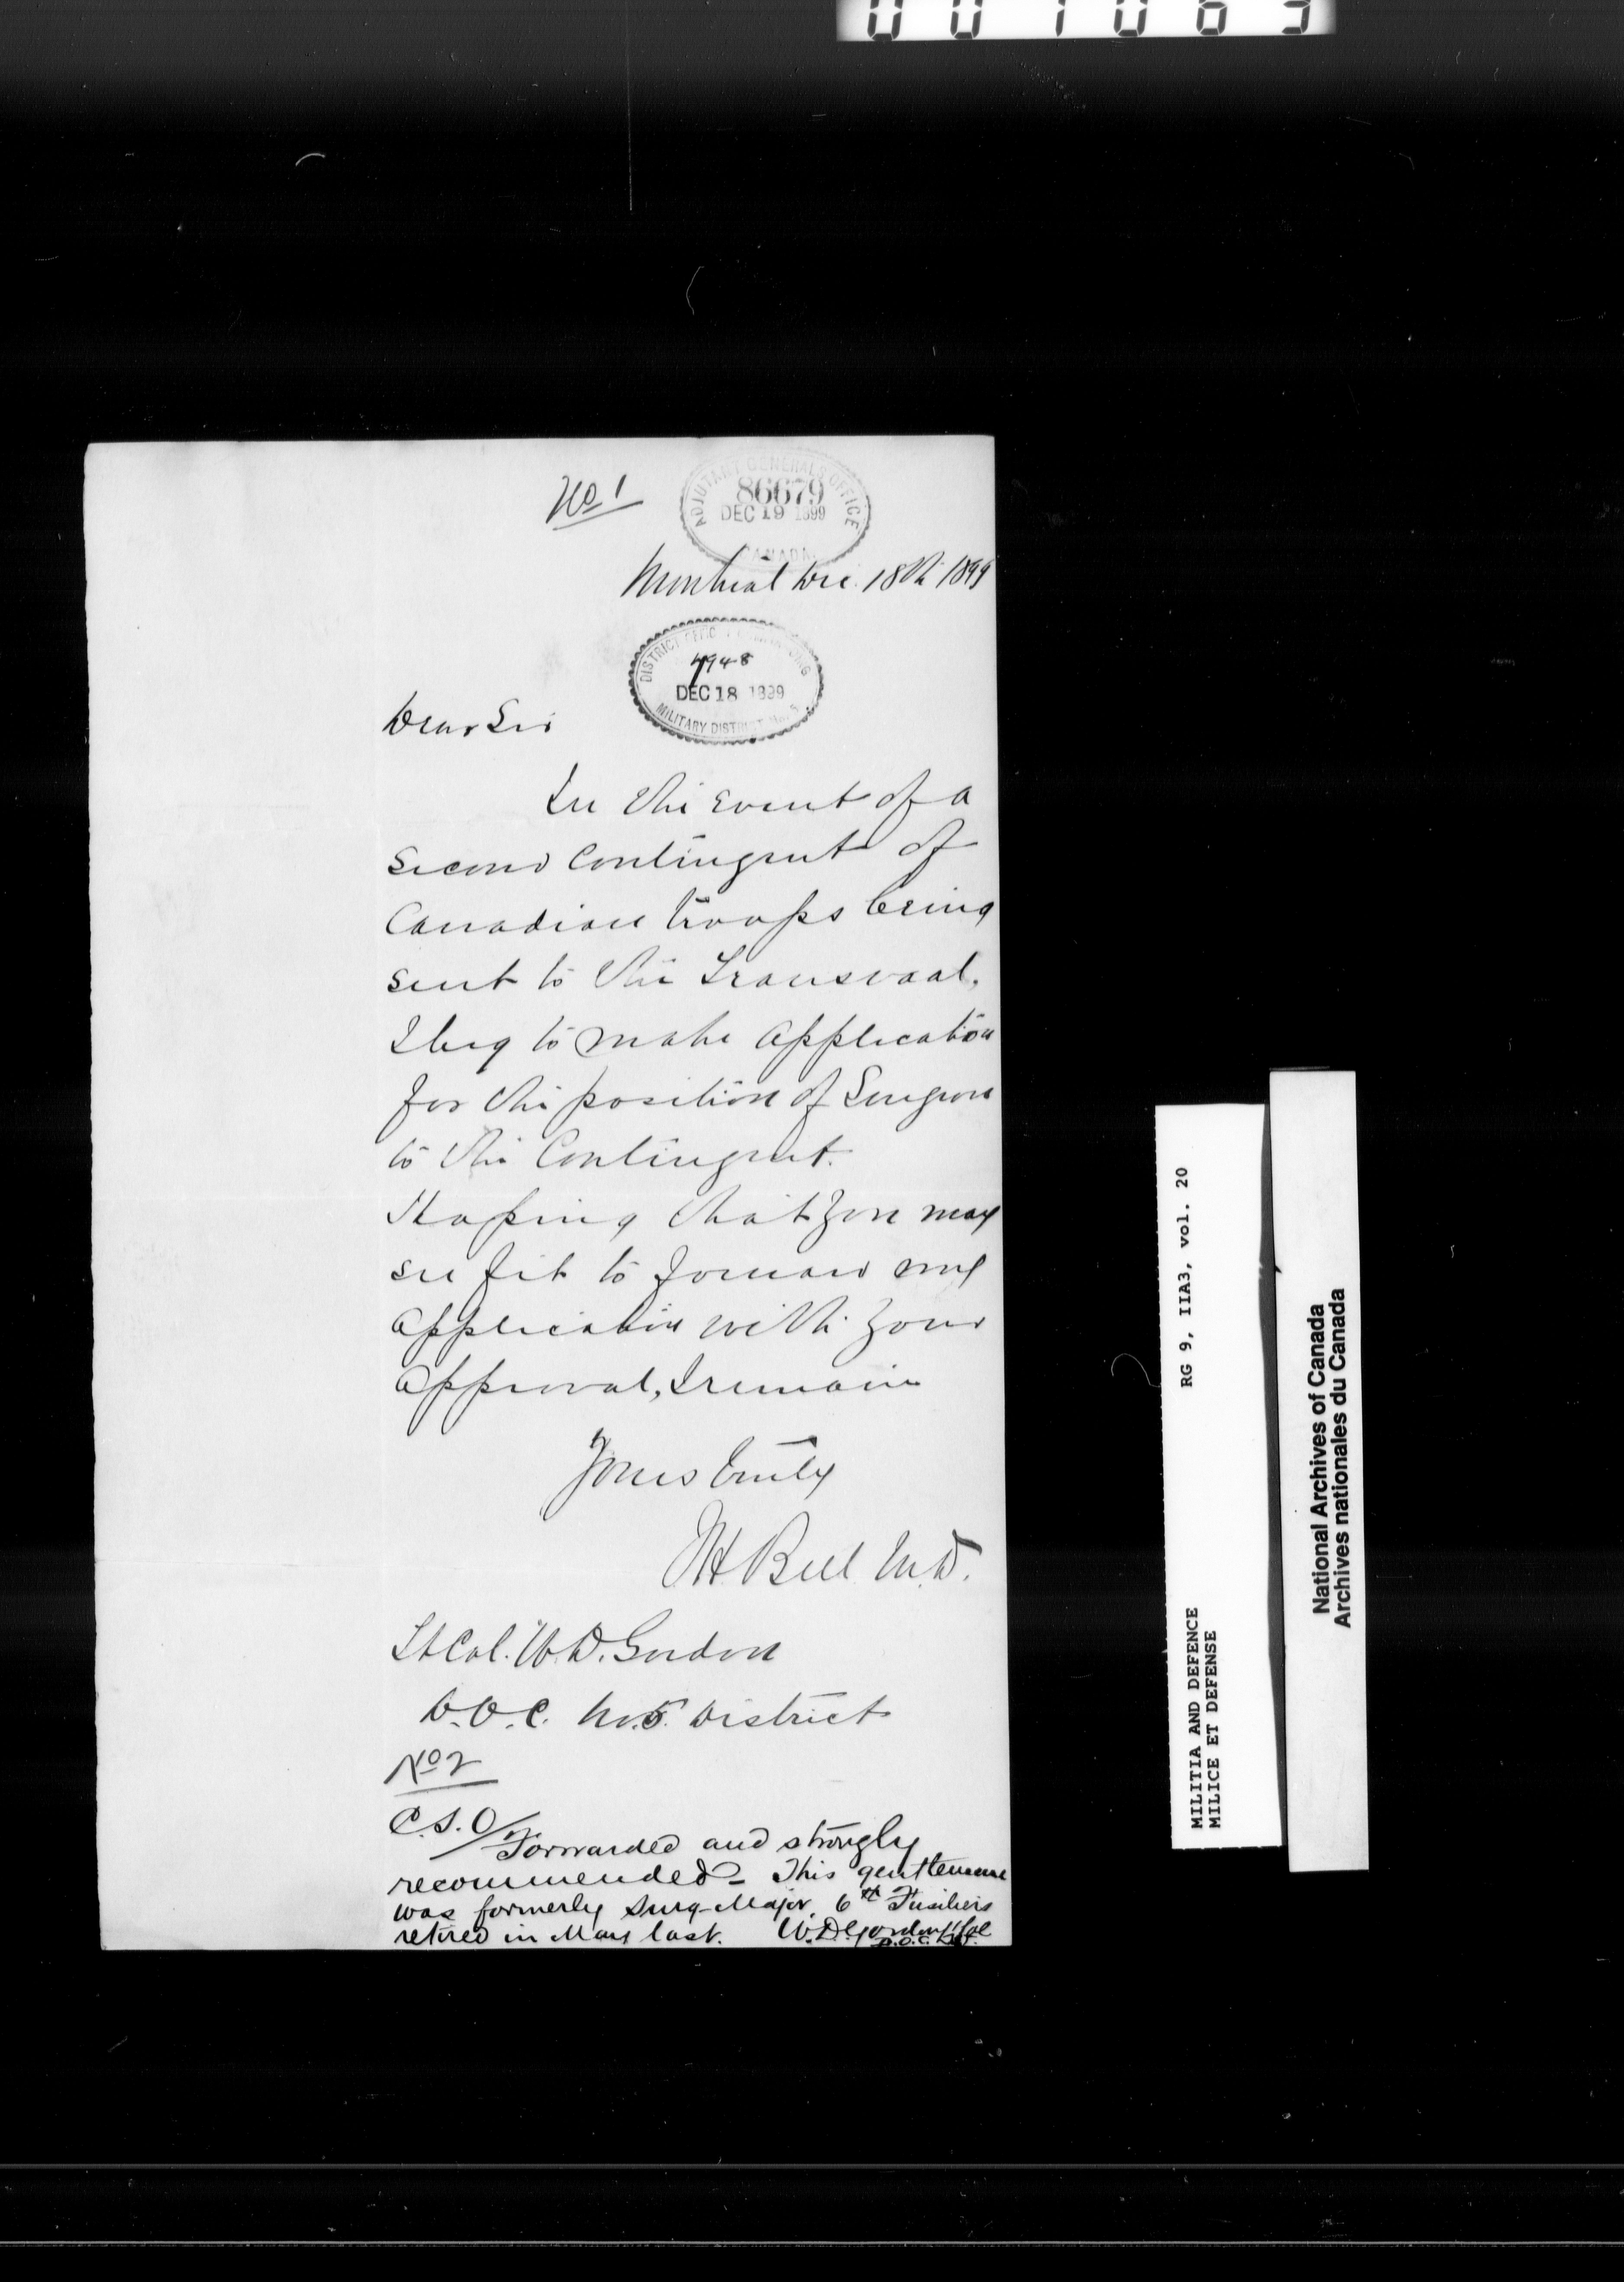 001063
No 1
ADJUTANT GENERALS OFFICE
86679
DEC 19 1899
CANADA
Montreal Dec. 18th 1899
DISTRICT OFFIC
4948
DEC 18 1899
MILITARY DISTRICT No. 5
Dear Sir
In the event of a
second contingent of
Canadian troops being
sent to the Transvaal,
I beg to make application
for the position of Surgeon
to the Contingent.
Hoping that you may
see fit to forward my
application with your
approval, I remain
Yours truly
Bell M.D.
Lt Col. W. D. Gordon
D.O.C. No. 5. District
No 2
C.S.O/
Forwarded and strongly
recommended - This gentleman
was formerly Surg-Major, 6th Fusiliers
retired in May last. W.D. Gordon Lt Col
D.O.C.
RG 9, IIA3, vol. 20
MILITIA AND DEFENCE
MILICE ET DEFENSE
National Archives of Canada
Archives nationales du Canada